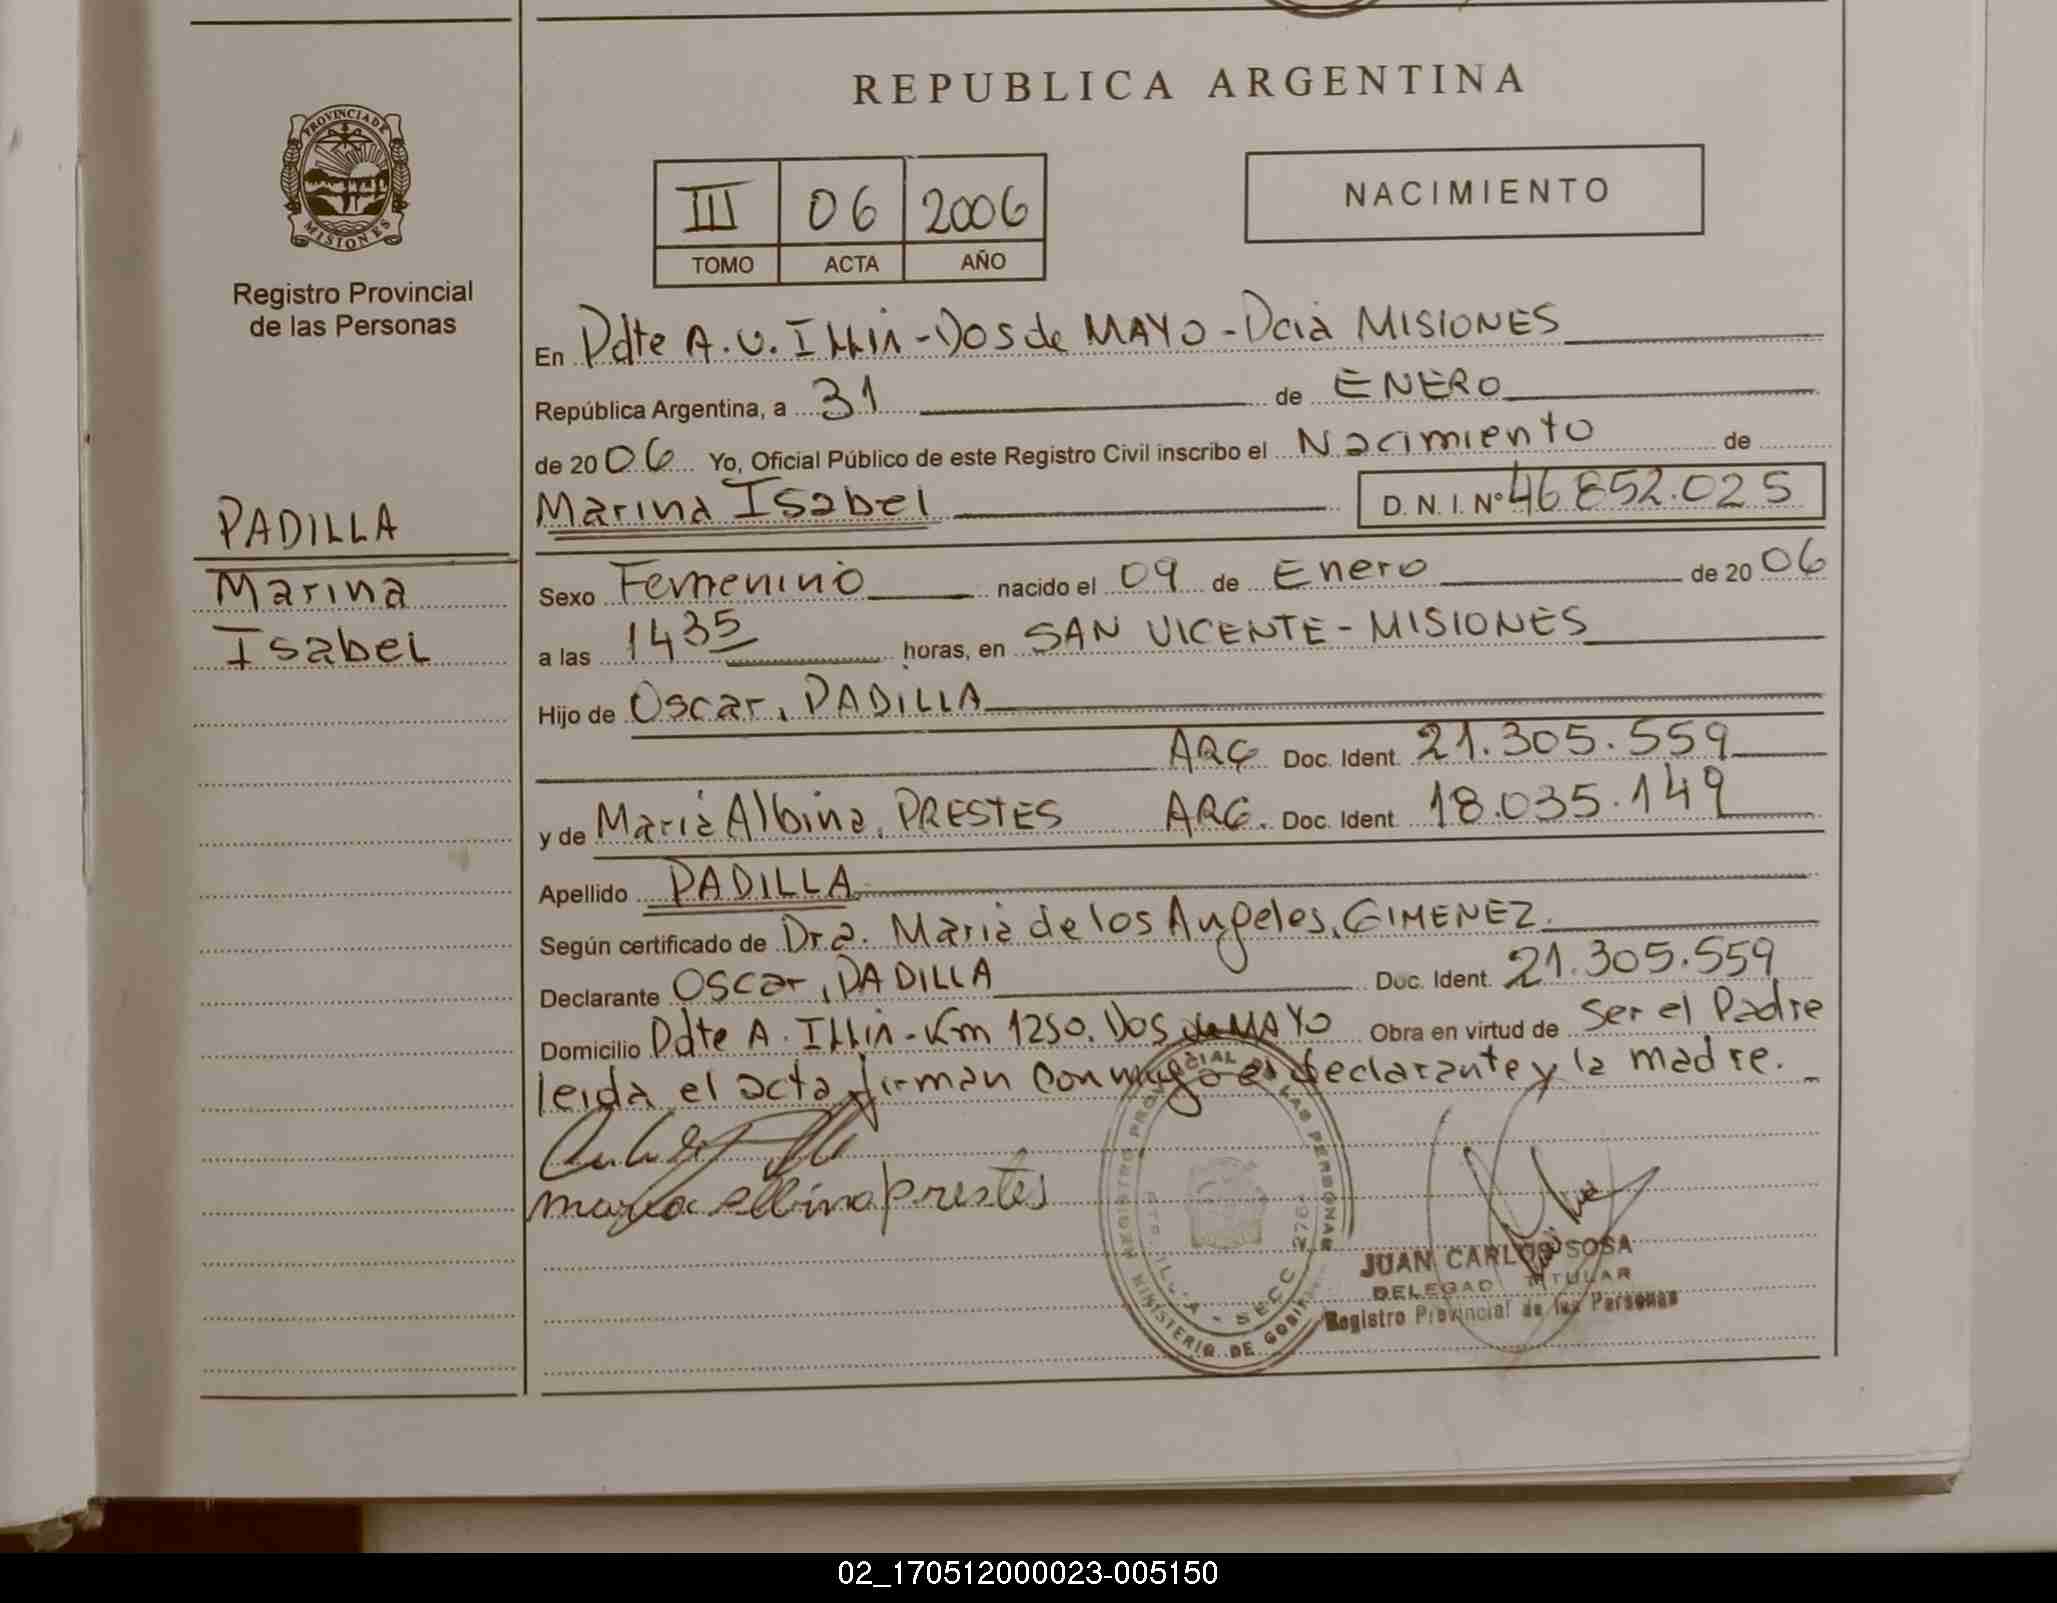 REPUBLICA ARGENTINA
PROVINCIA DE
MISIONES
Registro Provincial
de las Personas
III 06 2006
TOMO ACTA AÑO
NACIMIENTO
En Pdte A. U. Illia - Dos de MAYO - Pcia MISIONES
República Argentina, a 31 de ENERO
de 2006 Yo, Oficial Público de este Registro Civil inscribo el Nacimiento de
Marina Isabel D. N. I. Nº 46852.025
PADILLA
Marina
Isabel
Sexo Femenino nacido el 09 de Enero de 2006
a las 1435 horas, en SAN VICENTE - MISIONES
Hijo de Oscar, PADILLA
ARG Doc. Ident. 21.305.559
y de Maria Albina, PRESTES ARG. Doc. Ident. 18.035.149
Apellido PADILLA
Según certificado de Dra. Maria de los Angeles, GIMENEZ.
Declarante Oscar, PADILLA Doc. Ident. 21.305.559
Domicilio Pdte A. Illia - Km 1250. Dos de MAYO Obra en virtud de ser el Padre
leida el acta firman conmigo el declarante y la madre.
maria albina prestes
REGISTRO PROVINCIAL DE LAS PERSONAS
MINISTERIO DE
SECC
JUAN CARLOS SOSA
DELEGADO TITULAR
Registro Provincial de las Personas
02_170512000023-005150